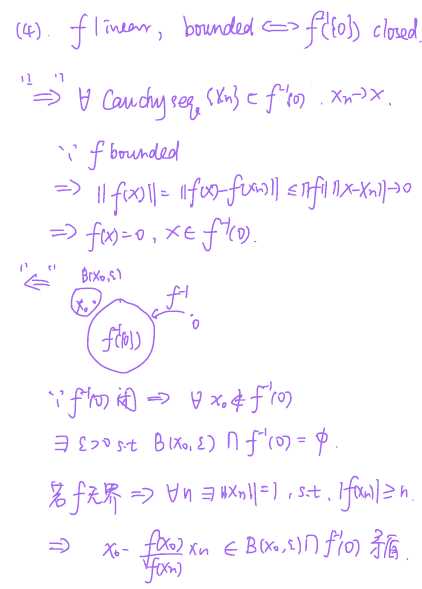 (4). f linear, bounded ⟺ f⁻¹({0}) closed.
"⇒" ∀ Cauchy seq. {xn} ⊂ f⁻¹(0). xn→x.
∵ f bounded
⇒ ||f(x)|| = ||f(x)-f(xn)|| ≤ ||f|| ||x-xn|| → 0
⇒ f(x)=0, x ∈ f⁻¹(0).
"⇐" B(x₀,ε)
x₀ f⁻¹
f⁻¹({0}) 0
∵ f⁻¹(0) 闭 ⇒ ∀ x₀ ∉ f⁻¹(0)
∃ ε>0 s.t. B(x₀,ε) ∩ f⁻¹(0) = ϕ.
若 f 无界 ⇒ ∀n ∃ ||xn||=1, s.t. |f(xn)| ≥ n.
⇒ x₀ - f(x₀)/f(xn) xn ∈ B(x₀,ε) ∩ f⁻¹(0) 矛盾.